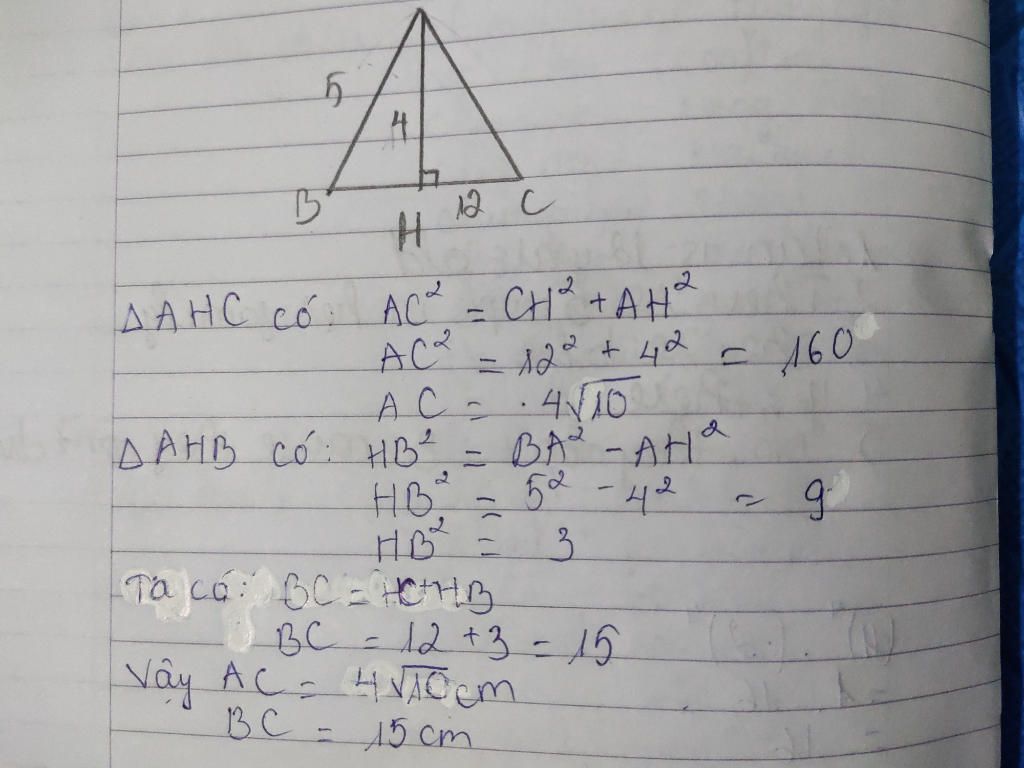 5
4
B H 12 C
ΔAHC có: AC² = CH² + AH²
AC² = 12² + 4² = 160
AC = 4√10
ΔAHB có: HB² = BA² - AH²
HB² = 5² - 4² = 9
HB² = 3
Ta có: BC = HC + HB
BC = 12 + 3 = 15
Vậy AC = 4√10 cm
BC = 15 cm